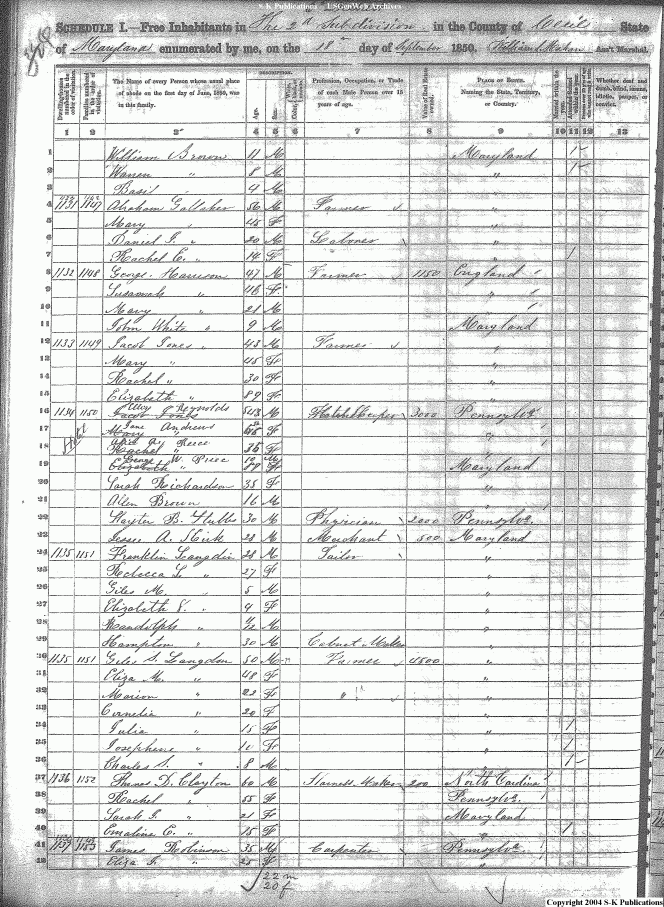 © S-K Publications - USGenWeb Archives
SCHEDULE I.—Free Inhabitants in The 2d Subdivision in the County of Cecil State
of Maryland enumerated by me, on the 18th day of September 1850. Ass't Marshal.
DESCRIPTION.
The Name of every Person whose usual place of abode on the first day of June, 1850, was in this family.
Age.
Sex.
Profession, Occupation, or Trade of each Male Person over 15 years of age.
Value of Real Estate owned.
PLACE OF BIRTH. Naming the State, Territory, or Country.
Married within the year.
Whether deaf and dumb, blind, insane, idiotic, pauper, or convict.
1 2 3 4 5 6 7 8 9 10 11 12 13
1 William Brown 11 M Maryland 1
2 Warren " 8 M " 1
3 Basil " 4 M
4 1131 1147 Abraham Gallaher 56 M Farmer "
5 Mary " 45 F "
6 Daniel J. " 20 M Laborer "
7 Rachel E. " 14 F " 1
8 1132 1148 George Harrison 47 M Farmer 1150 England
9 Susannah " 46 F "
10 Mary " 21 "
11 John White " 9 M Maryland
12 1133 1149 Jacob Jones 43 M Farmer "
13 Mary " 45 F "
14 Rachel " 30 F "
15 Elizabeth " 89 F "
16 1134 1150 Reynolds M 3000 Pennsylva
17 Jane Andrews F "
18 Hotel Reece 35 F "
19 George W. Price Maryland
20 Sarah Richardson 35 F "
21 Allen Brown 16 M "
22 Slayter B. Stubbs 30 M Physician 2000 Pennsylva.
23 Jesse A. Kirk 28 M Merchant 500 Maryland
24 1135 1151 Franklin Langdin 28 M Tailor "
25 Rebecca " 27 F "
26 Giles M. " 5 M "
27 Elizabeth " 4 F "
28 Randolph " M "
29 Hampton " 30 M Cabinet Maker "
30 1135 1151 Giles S. Langdon 50 M Farmer 4500 "
31 Eliza M. " 48 F "
32 Marion " 22 F " "
33 Cornelia " 20 F "
34 Julia " 15 F " 1
35 Josephene " 10 F " 1
36 Charles S. " 8 M " 1
37 1136 1152 Thomas D. Clayton 60 M Harness Maker 200 North Carolina
38 Rachel " 55 F Pennsylva.
39 Sarah J. " 21 F Maryland
40 Emaline C. " 15 F " 1
41 1137 1153 James Robinson 35 M Carpenter Pennsylva
42 Eliza J. " 25 F "
22 m
20 f
Copyright 2004 S-K Publications